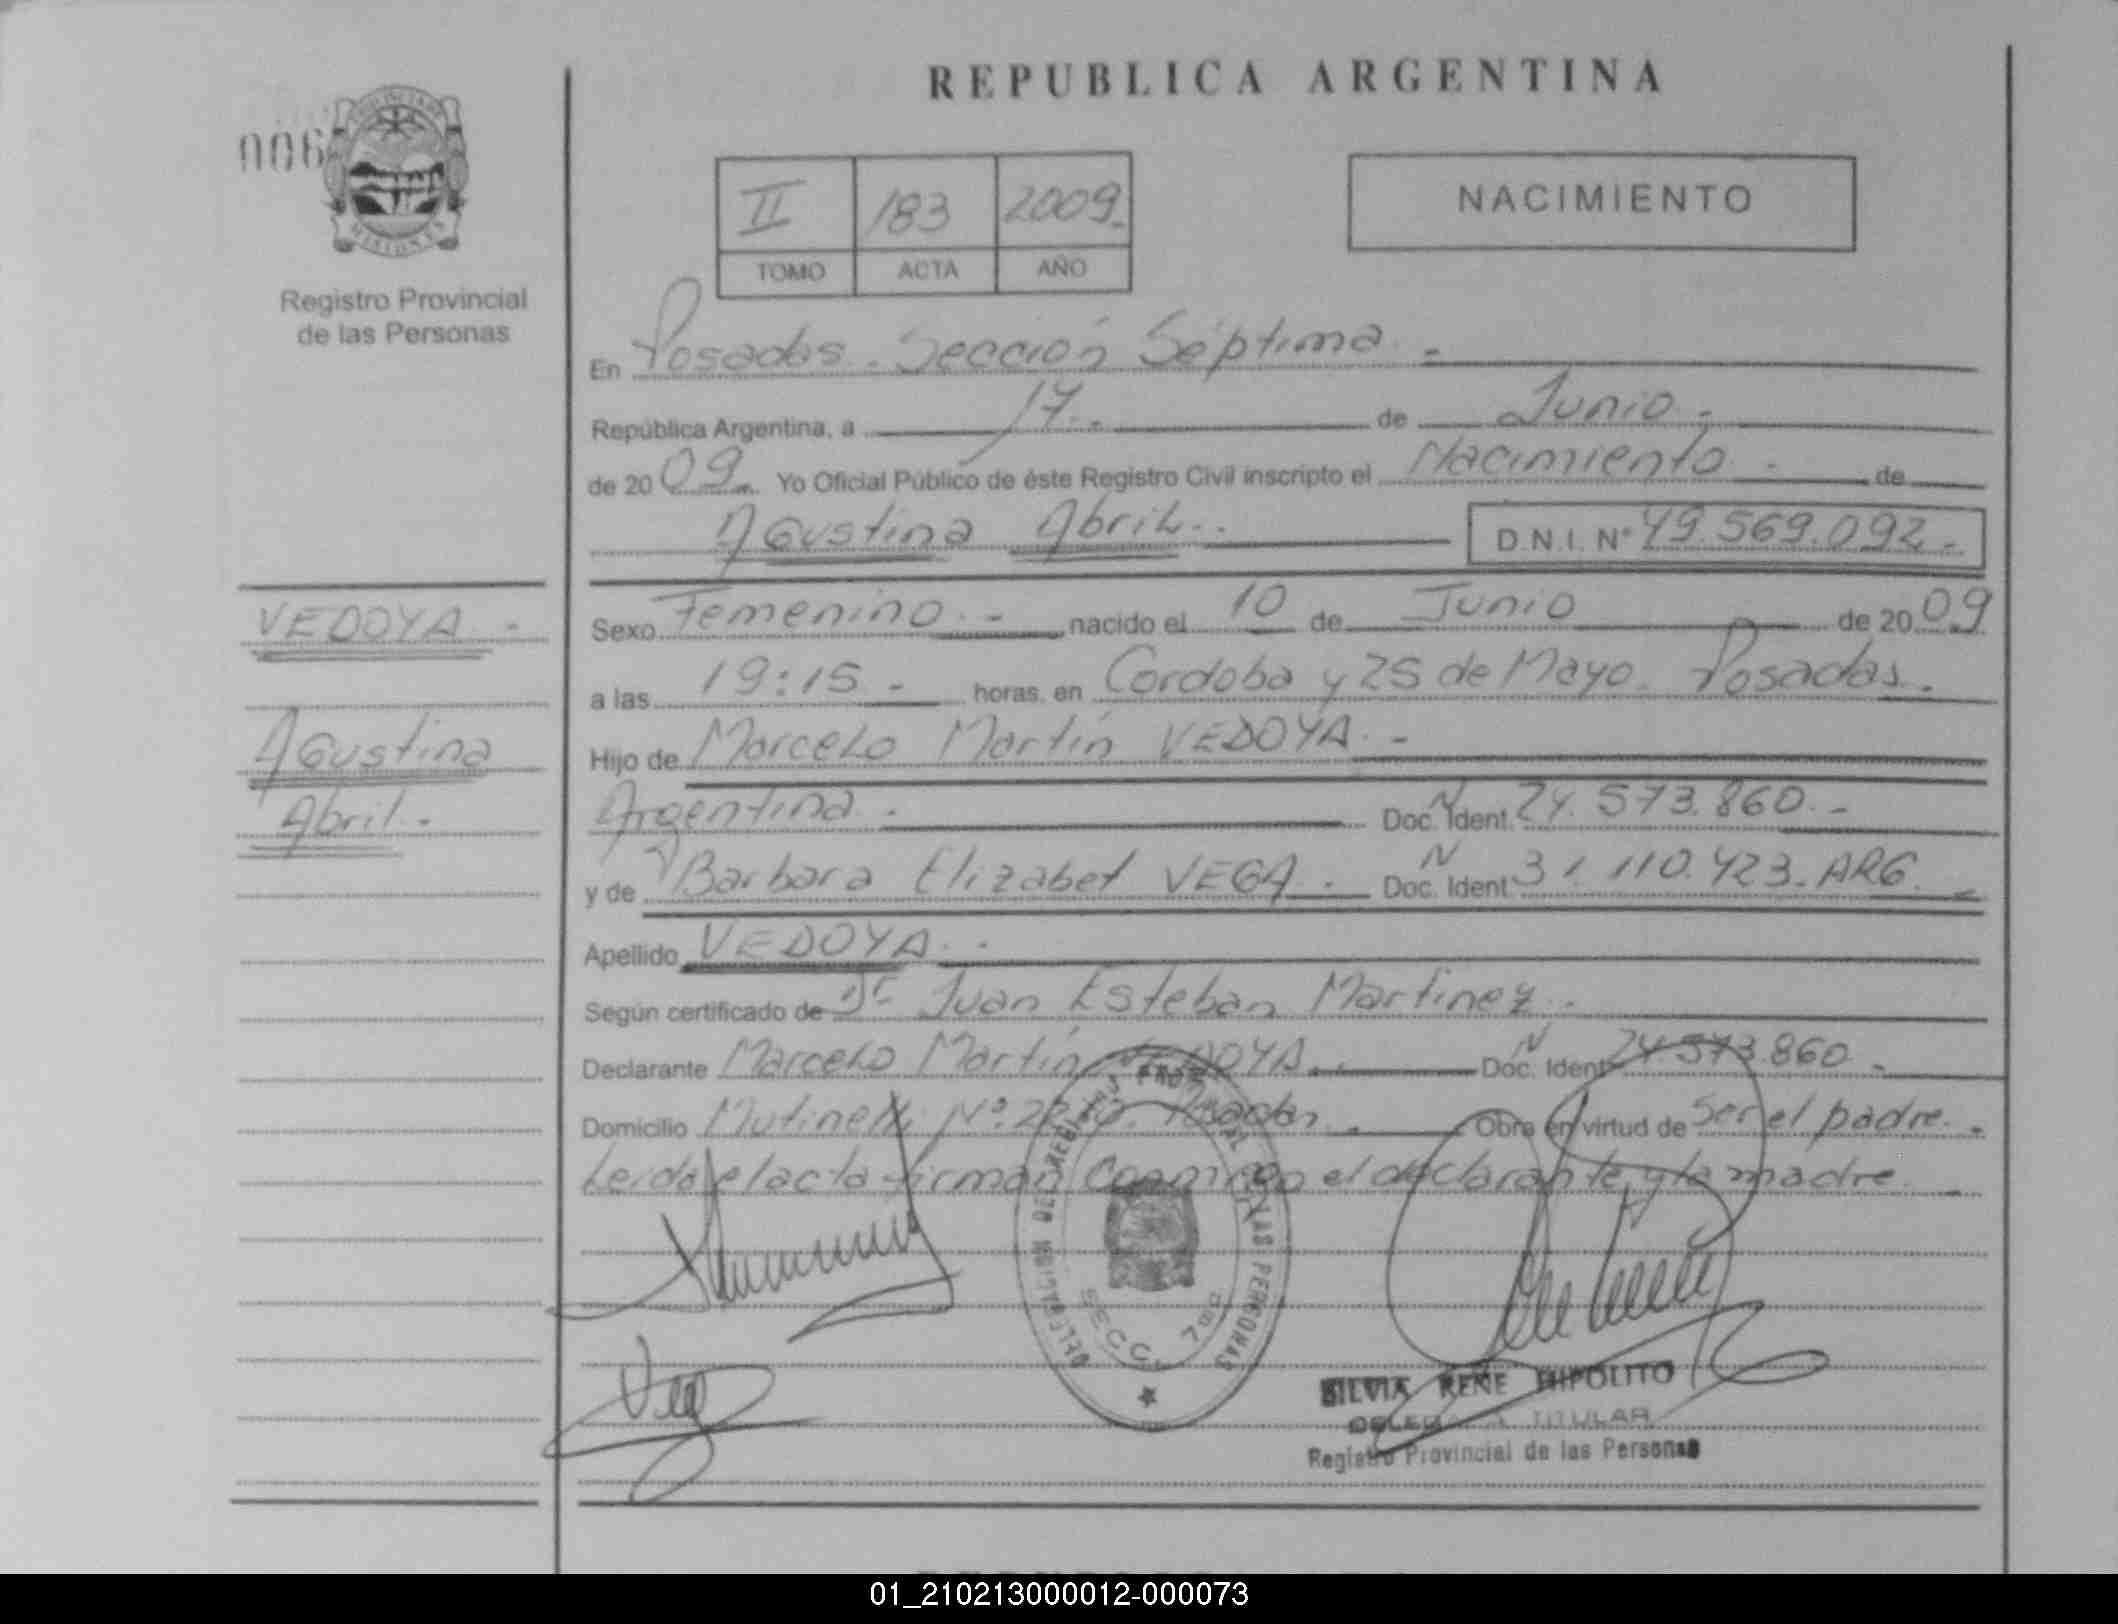 REPUBLICA ARGENTINA
006
PROVINCIA DE MISIONES
Registro Provincial
de las Personas
II 183 2009.
TOMO ACTA AÑO
NACIMIENTO
En Posadas. Sección Séptima. -
República Argentina, a 17. - de Junio. -
de 2009. Yo Oficial Público de éste Registro Civil inscripto el Nacimiento. - de
Agustina Abril. - D.N.I. Nº 49.569.092.-
VEDOYA -
Agustina
Abril. -
Sexo Femenino. - nacido el 10 de Junio de 2009
a las 19:15 - horas, en Cordoba y 25 de Mayo. Posadas.
Hijo de Marcelo Martín VEDOYA. -
Argentina. - Doc. Ident. N 24.573.860. -
y de Barbara Elizabet VEGA. - Doc. Ident. N 31.110.423. ARG. -
Apellido VEDOYA. -
Según certificado de Dr Juan Esteban Martinez. -
Declarante Marcelo Martín VEDOYA. - Doc. Ident. N 24.573.860 -
Domicilio Posadas. - Obra en virtud de Ser el padre. -
Leída el acta firman Conmigo el declarante y la madre. -
DELEGACION DEL REGISTRO PROVINCIAL DE LAS PERSONAS
SECC. 7ma
SILVIA RENE HIPOLITO
DELEGADA TITULAR
Registro Provincial de las Personas
01_210213000012-000073